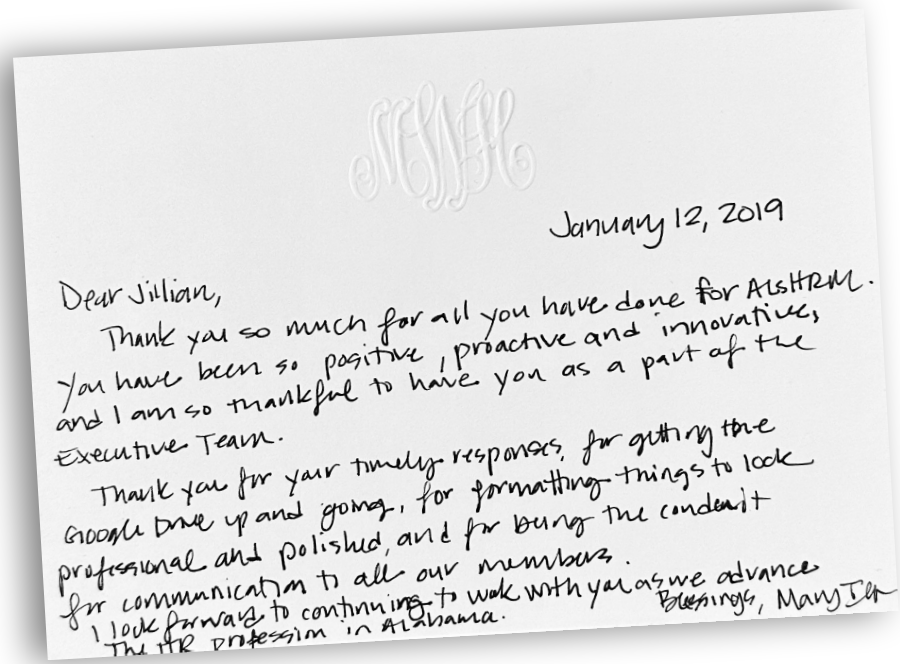 January 12, 2019
Dear Jillian,
Thank you so much for all you have done for ALSHRM.
You have been so positive, proactive and innovative,
and I am so thankful to have you as a part of the
Executive Team.
Thank you for your timely responses, for getting the
Google Drive up and going, for formatting things to look
professional and polished, and for being the conduit
for communication to all our members.
I look forward to continuing to work with you as we advance
The HR profession in Alabama.
Blessings, Mary